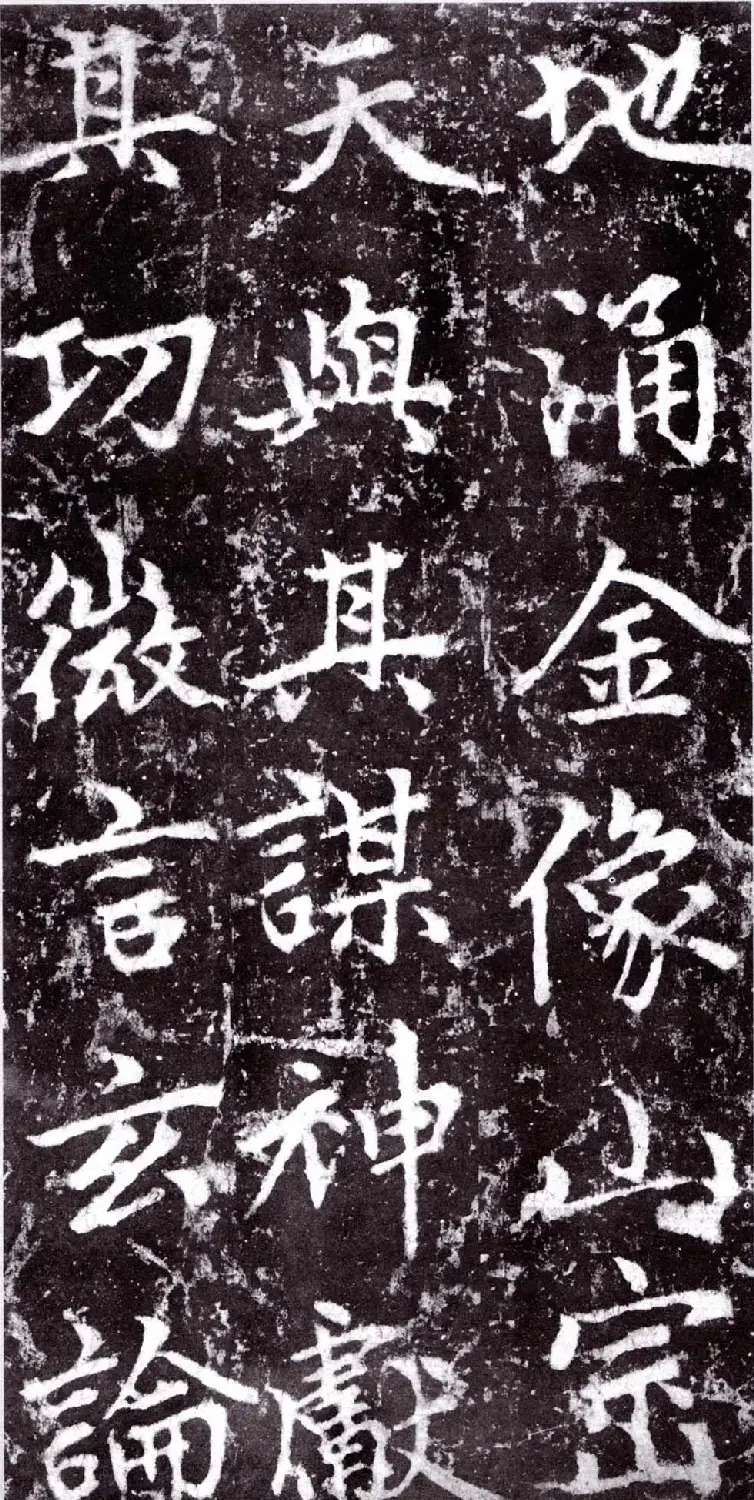 地涌金像山
天與其謀神獻
其功微言玄論